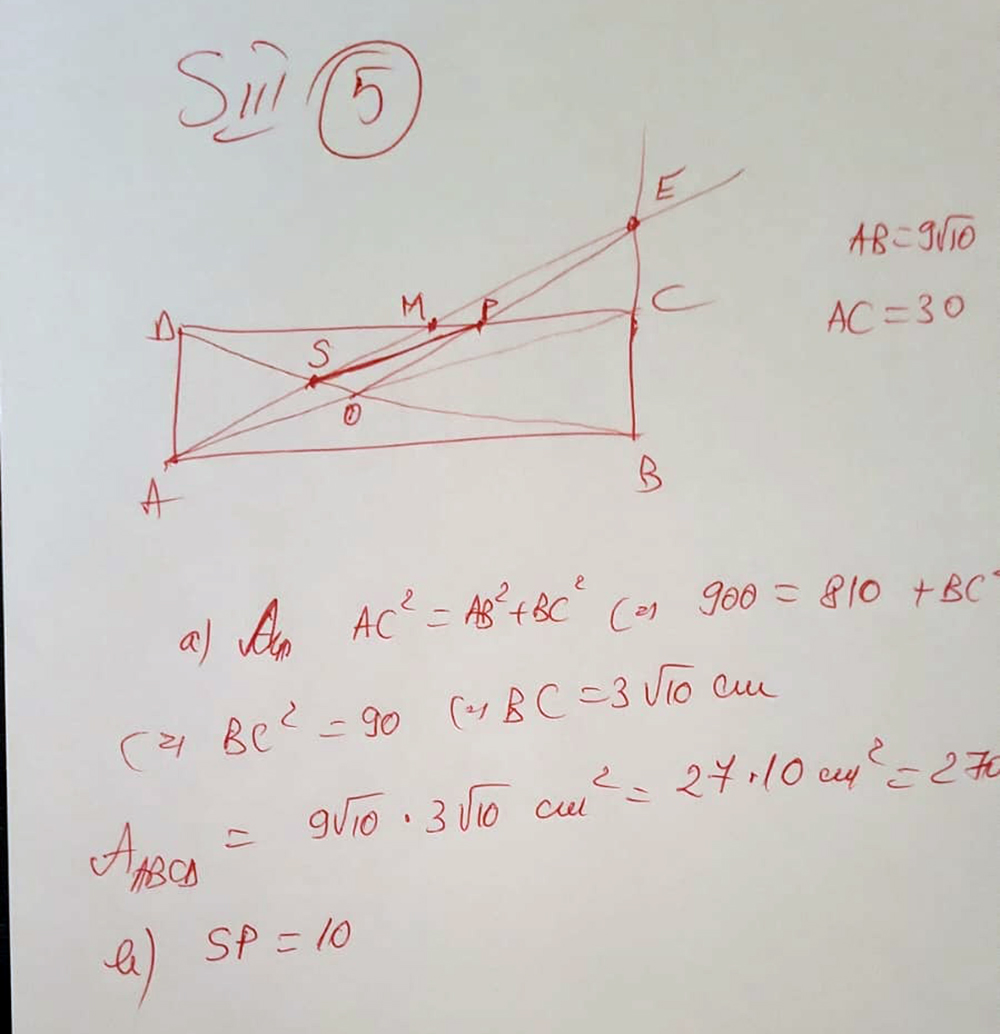 SIII 5
E
AB=9√10
M P C
D
AC=30
S
O
A B
a) AC² = AB²+BC² (=) 900 = 810 + BC²
(=) BC² = 90 (=) BC = 3√10 cm
A_ABCD = 9√10 · 3√10 cm² = 27·10 cm² = 270
b) SP = 10